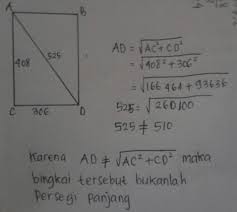 A
B
AD = √AC² + CD²
= √408² + 306²
408
525
= √166 464 + 93636
525 = √260100
C
306
D
525 ≠ 510
Karena AD ≠ √AC² + CD² maka
bingkai tersebut bukanlah
Persegi Panjang